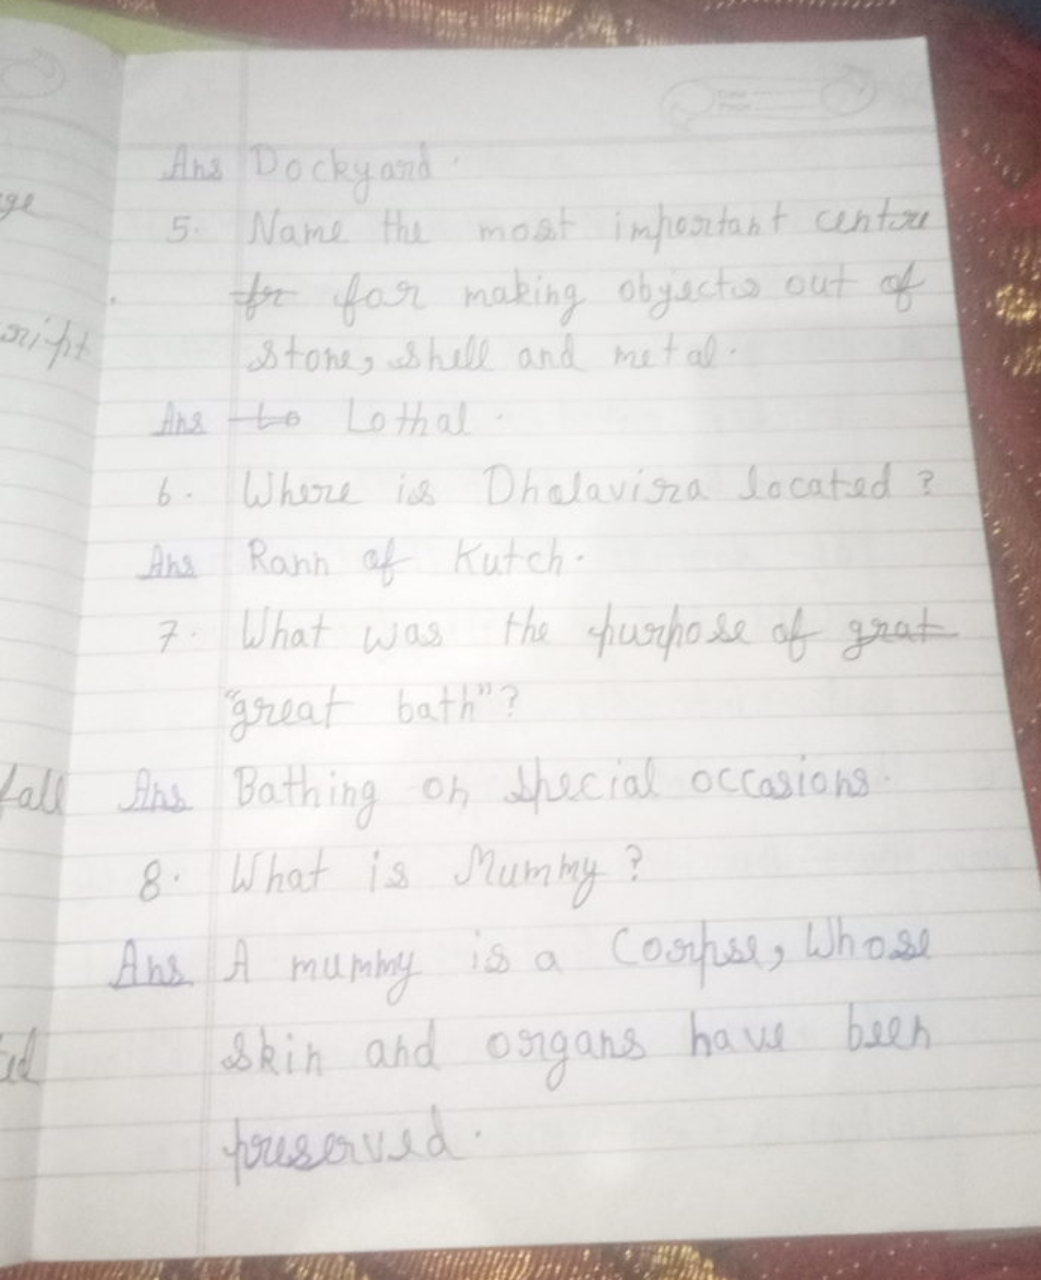 Ans Dockyard.
5. Name the most important centre
for for making objects out of
stone, shell and metal.
Ans Lo Lothal.
6. Where is Dholavira located?
Ans Rann of Kutch.
7. What was the purpose of grat
"great bath"?
Ans Bathing on special occasions.
8. What is Mummy?
Ans A mummy is a Corpse, Whose
skin and organs have been
preserved.